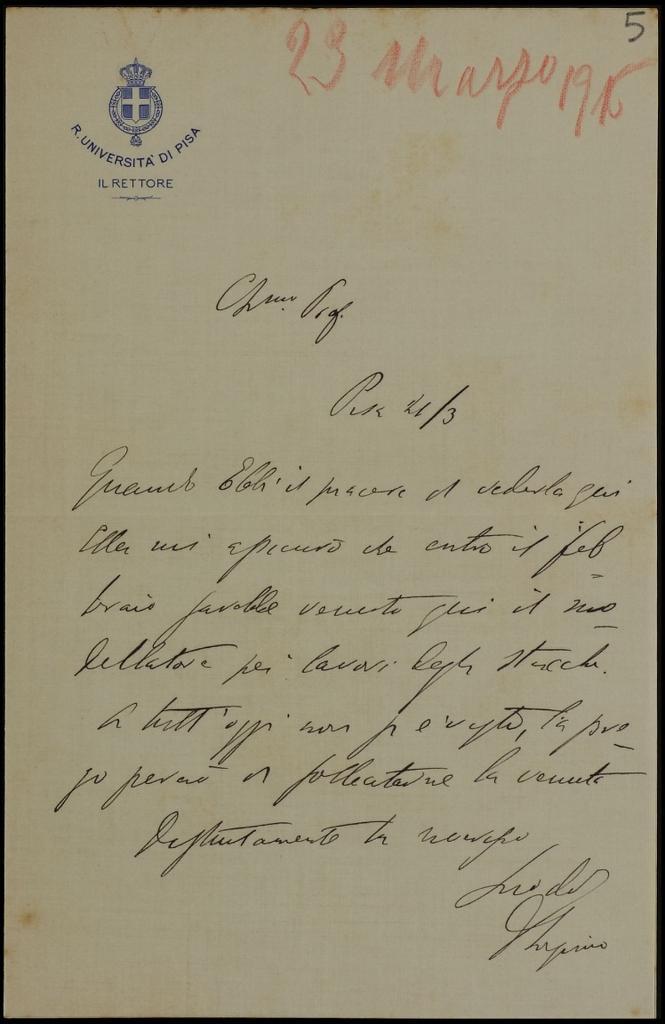 5
23 Marzo 1915
R. UNIVERSITÀ DI PISA
IL RETTORE
Ch.mo Prof.
Pisa 21/3
Quando Ebbi il piacere di vederla qui
Ella mi assicurò che entro il feb
braio sarebbe venuto qui il mo
dellatore pei lavori degli stucchi.
A tutt'oggi non si è visto, la pre
go perciò di sollecitarne la venuta
Distintamente la
Suo